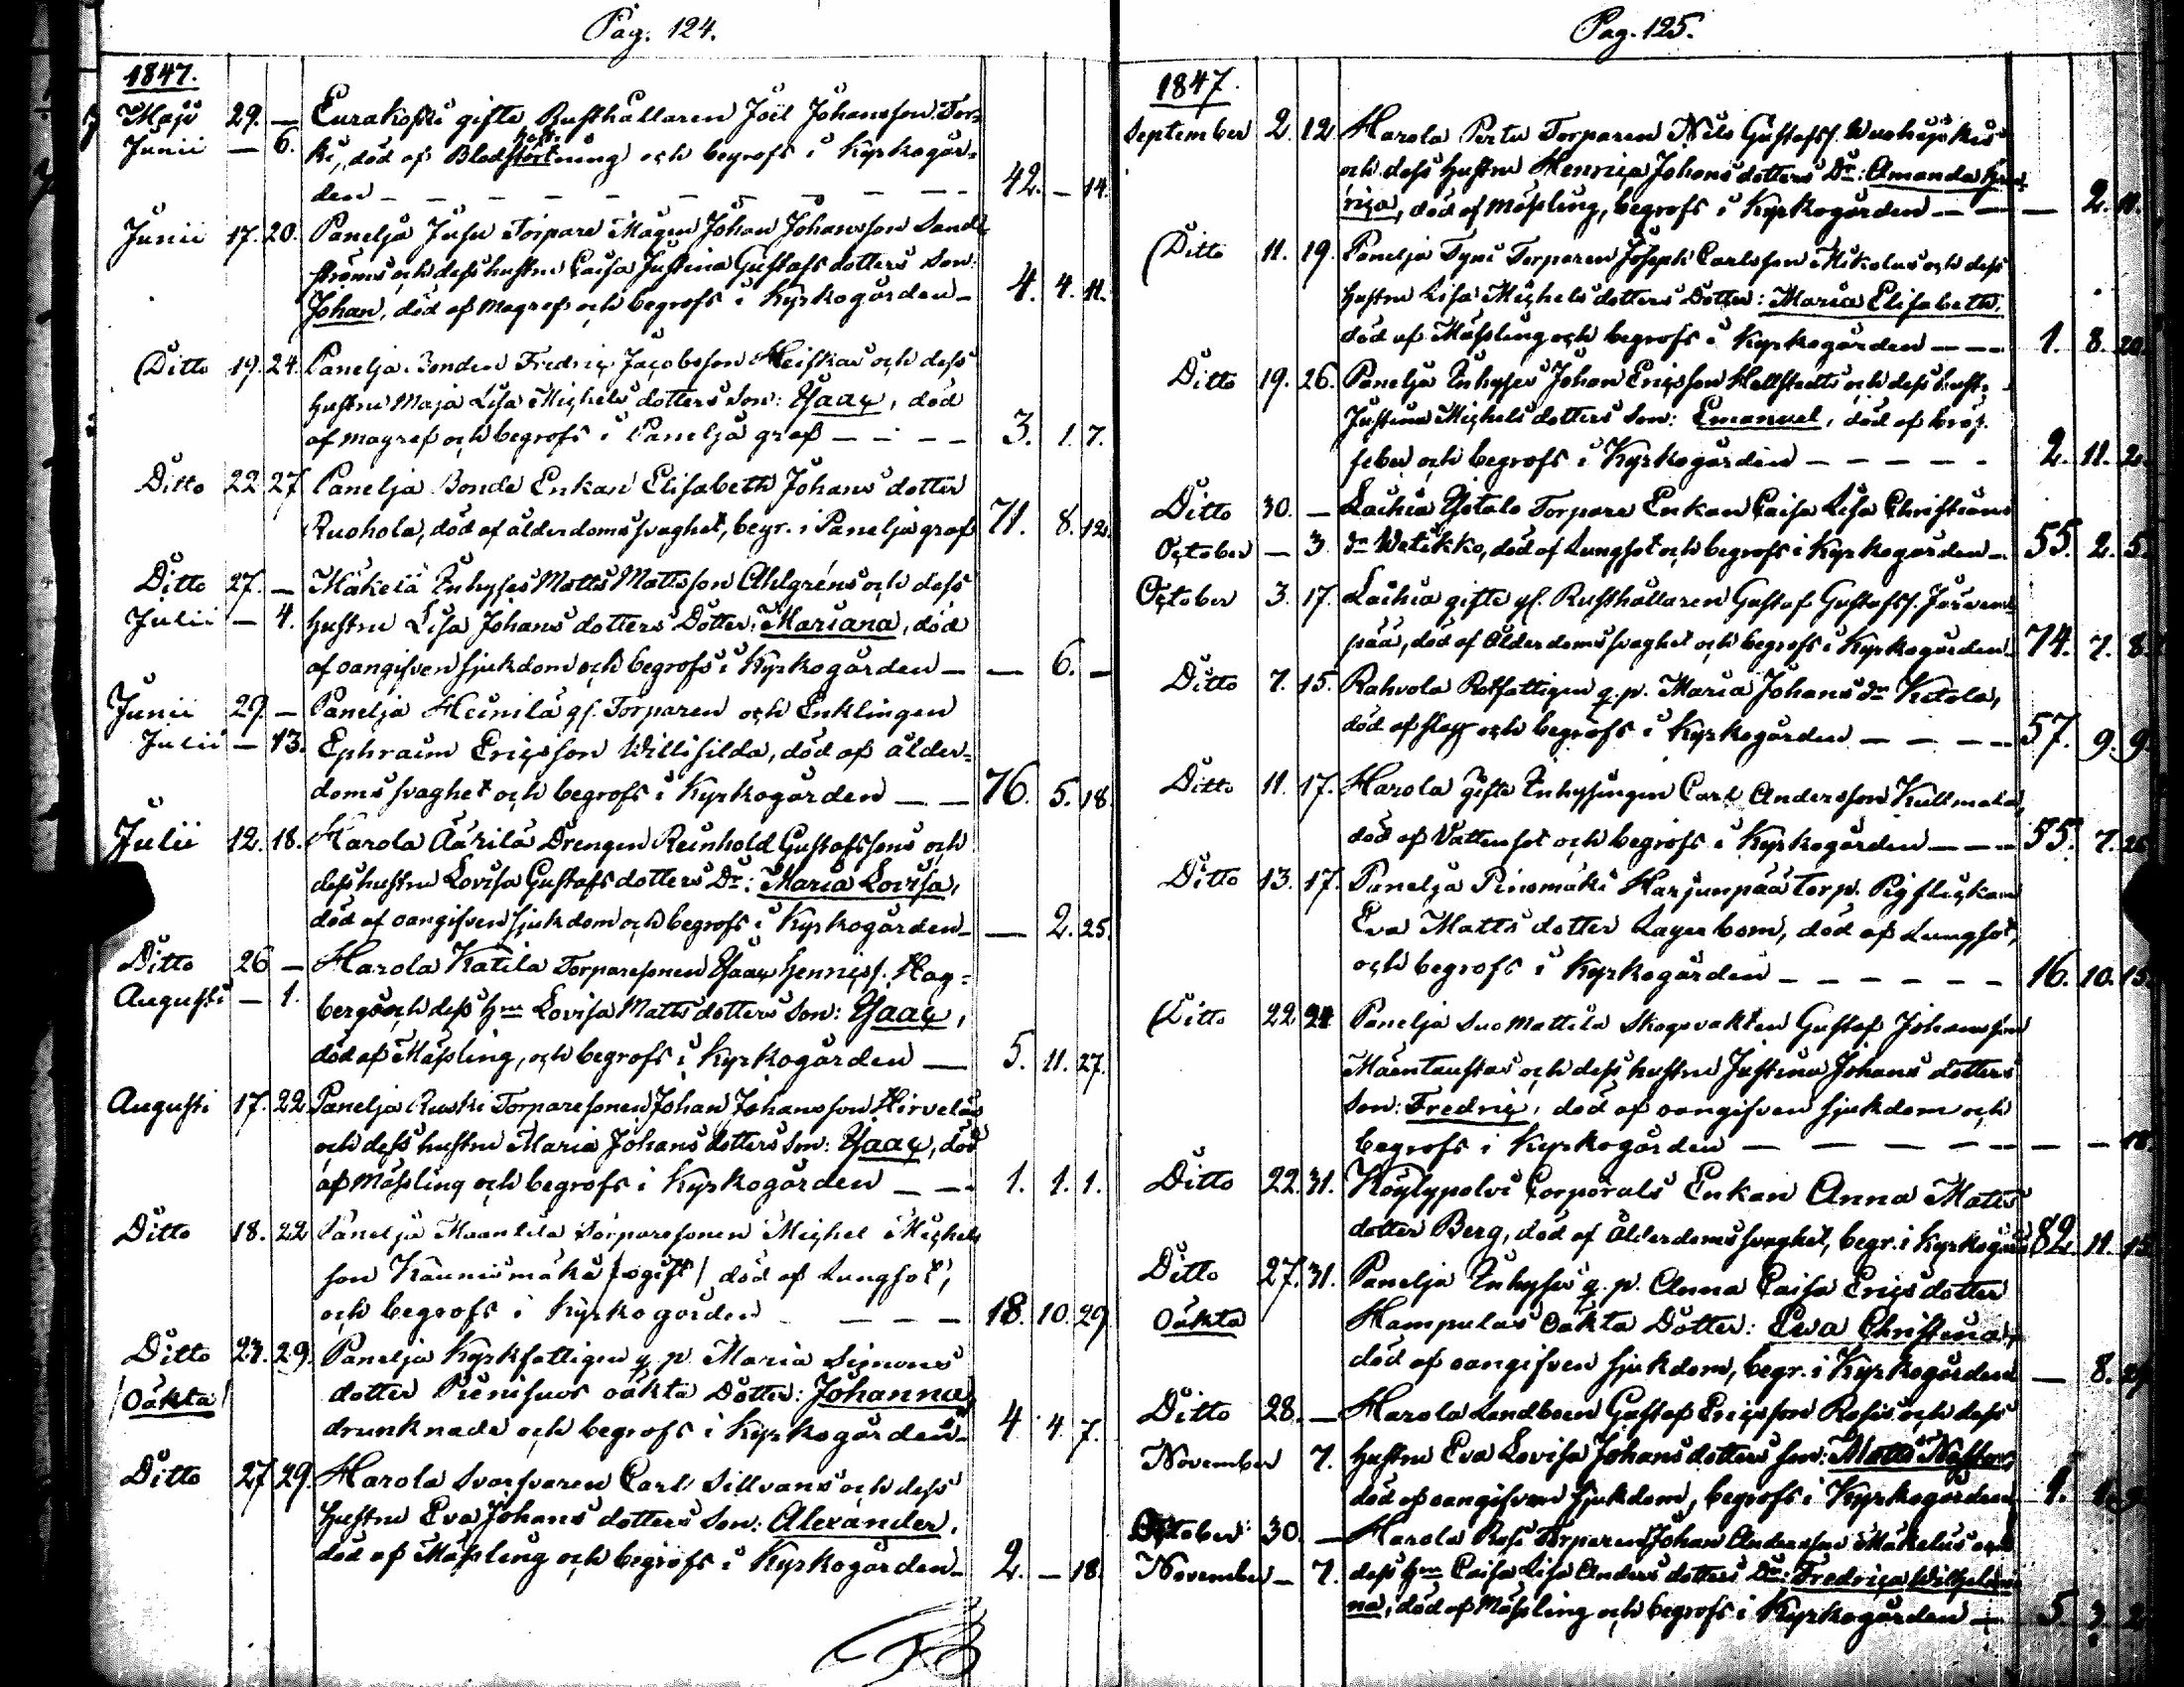 Pag. 124.
1847.
Maji 29. — Eurakoski gifte Rusthållaren Joël Johansson Tor-
Junii — 6. ki, död af Blodstörtning och begrofs i Kyrkogår-
den — — — — — — — — 42. — 14.
Junii 17. 20. Panelja Torpare Magen Johan Johansson Sand-
ströms och dess hustru Caisa Justina Gustafsdotters Son:
Johan, död af Magref och begrofs i Kyrkogården — 4. 4. 11.
Ditto 19. 24. Panelja Bonden Fredric Jacobsson Heiskas och dess
hustru Maja Lisa Michelsdotters Son: Isaac, död
af magref och begrofs i Panelja graf — — — 3. 1. 7.
Ditto 22 27 Panelja Bonde Enkan Elisabeth Johans dotter
Ruohola, död af ålderdomssvaghet, begr. i Panelja graf 71. 8. 12.
Ditto 27. — Mäkelä Inhyses Matts Mattsson Ahlgréns och dess
Julii — 4. hustru Lisa Johans dotters Dotter: Mariana, död
af oangifven sjukdom och begrofs i Kyrkogården — — 6. —
Junii 29. — Panelja Heinilä gf. Torparen och Enklingen
Julii — 13. Ephraim Ericsson Willisilda, död af ålder-
doms svaghet och begrofs i Kyrkogården — — 76. 5. 18.
Julii 12. 18. Harola Äärilä Drengen Reinhold Gustafssons och
dess hustru Lovisa Gustafsdotters Dr: Maria Lovisa,
död af oangifven sjukdom och begrofs i Kyrkogården — — 2. 25.
Ditto 26 — Harola Katila Torparesonen Isaac Henrics. Hag-
Augusti — 1. bergs och dess Hru Lovisa Matts dotters Son: Isaac,
död af Mässling, och begrofs i Kyrkogården — 5. 11. 27.
Augusti 17. 22 Panelja Ruski Torparesonen Johan Johansson Hirvelas
och dess hustru Maria Johans dotters Son: Isaac, död
af Mässling och begrofs i Kyrkogården — — 1. 1. 1.
Ditto 18. 22 Panelja Maantila Torparesonen Michel Michels
son Kaunismäki (ogift) död af Lungsot,
och begrofs i Kyrkogården — — — 18. 10. 29
Ditto 23. 29. Panelja Kyrkfattigen q. p. Maria Simons
(Oäkta) dotter Pienisuos oäkta Dotter: Johanna
drunknade och begrofs i Kyrkogården — 4. 4. 7.
Ditto 27 29. Harola Svarfvaren Carl Sillvans och dess
hustru Eva Johans dotters Son: Alexander,
död af Mässling och begrofs i Kyrkogården — 2. — 18.
Pag. 125.
1847.
September 2. 12. Harola Torparen Nils Gustafss.
och dess hustru Henrica Johans dotters Dr: Amanda Hen-
rica, död af Mässling, begrofs i Kyrkogården — — — 2. 11.
Ditto 11. 19. Panelja Tyni Torparen Joseph Carlsson Mikolas och dess
hustru Lisa Michels dotters Dotter: Maria Elisabeth,
död af Mässling och begrofs i Kyrkogården — — 1. 8. 20.
Ditto 19. 26. Panelja Inhyses Johan Ericsson Hellstedts och dess hust.
Justina Michels dotters Son: Emanuel, död af
feber och begrofs i Kyrkogården — — — — — 2. 11. 2.
Ditto 30. — Laihia Ylitalo Torpare Enkan Caisa Lisa Christians
October — 3 dr Wetikko, död af Lungsot och begrofs i Kyrkogården — 55. 2. 5.
October 3. 17. Laihia gifte gf. Rusthållaren Gustaf Gustafss. Järven
pää, död af Ålderdomssvaghet och begrofs i Kyrkogården — 74. 7. 8.
Ditto 7. 15. Rahvola Rotfattigen q. p. Maria Johans dr Ketola,
död af slag och begrofs i Kyrkogården — — — 57. 9. 9.
Ditto 11. 17. Harola Gifte Inhysingen Carl Andersson Kullmala,
död af Vattensot och begrofs i Kyrkogården — — 55. 7.
Ditto 13. 17. Panelja Pinomäki Harjunpää Torp. Pigflickan
Eva Matts dotter Lagerbom, död af Lungsot,
och begrofs i Kyrkogården — — — — — 16. 10. 15.
Ditto 22. 24 Panelja Suomattila Skogsvakten Gustaf Johansson
Mäentaustas och dess hustru Justina Johans dotters
Son: Fredric, död af oangifven sjukdom och
begrofs i Kyrkogården — — — — — — 18.
Ditto 22. 31. Köylypolvi Corporals Enkan Anna Matts
dotter Berg, död af Ålderdomssvaghet, begr. i Kyrkogård 82. 11. 15
Ditto 27. 31. Panelja Inhyses q. p. Anna Caisa Erics dotter
Oäkta Hampulas Oäkta Dotter: Eva Christina,
död af oangifven sjukdom, begr. i Kyrkogården — 8.
Ditto 28. — Harola Landboen Gustaf Ericsson Rosis och dess
November 7. hustru Eva Lovisa Johans dotters Son: Matts
död af oangifven sjukdom, begrofs i Kyrkogården 1.
October 30. — Harola Rosi Torparen Johan Andersson Mäkeläs och
November — 7. dess Hru Caisa Lisa Anders dotters Dr: Fredrica Wilhelmi
na, död af Mässling och begrofs i Kyrkogården — 5. 3. 2.